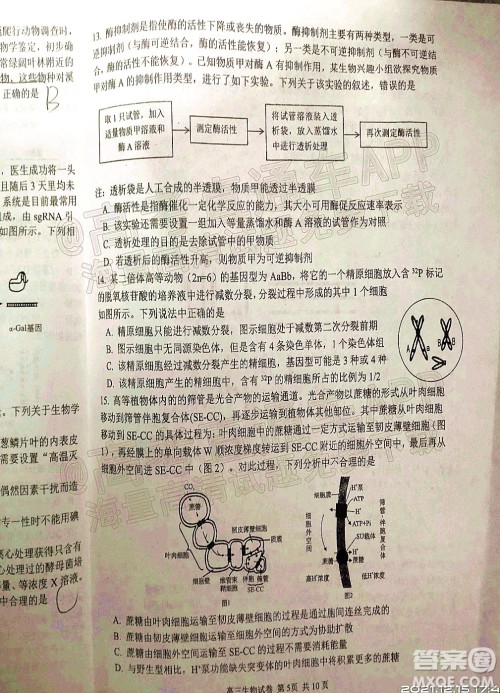 爬行动物调查时,
物学鉴定,初步确
常绿阔叶林附近的
物,这些物种对溪
正确的是
B
医生成功将一头
且随后3天里均未
系统是目前最常用
组成,由 sgRNA 引
如图所示。下列相
α-Gal基因
。下列关于生物学
葱鳞片叶的内表皮
需要设置“高温灭
偶然因素干扰而造
专一性时不能用碘
离心处理获得只含有
心处理过的酵母菌培
等量、等浓度X溶液。
中合理的是
13. 酶抑制剂是指使酶的活性下降或丧失的物质。酶抑制剂主要有两种类型,一类是可
逆抑制剂(与酶可逆结合,酶的活性能恢复);另一类是不可逆抑制剂(与酶不可逆结
合,酶的活性不能恢复)。已知物质甲对酶A有抑制作用,某生物兴趣小组欲探究物质
甲对酶A的抑制作用类型,进行了如下实验。下列关于该实验的叙述,错误的是
取1只试管,加入
适量物质甲溶液和
酶A溶液
测定酶活性
将试管溶液装入透
析袋,放入蒸馏水
中进行透析处理
再次测定酶活性
注:透析袋是人工合成的半透膜,物质甲能透过半透膜
A. 酶活性是指酶催化一定化学反应的能力,其大小可用酶促反应速率表示
B. 该实验还需要设置一组加入等量蒸馏水和酶A溶液的试管作为对照
C. 透析处理的目的是去除试管中的甲物质
D. 若透析后的酶活性升高,则物质甲为可逆抑制剂
14. 某二倍体高等动物(2n=6)的基因型为AaBb,将它的一个精原细胞放入含 ³²P 标记
的脱氧核苷酸的培养液中进行减数分裂,分裂过程中形成的其中1个细胞
如图所示。下列说法中正确的是
A. 精原细胞只能进行减数分裂,图示细胞处于减数第二次分裂前期
B. 图示细胞中无同源染色体,但是含有4条染色单体,1个染色体组
C. 该精原细胞经过减数分裂产生的精细胞,基因型可能是3种或4种
D. 该精原细胞减数分裂产生的精细胞中,含有 ³²P 的精细胞所占的比例为1/2
15. 高等植物体内的的筛管是光合产物的运输通道。光合产物以蔗糖的形式从叶肉细胞
移动到筛管伴胞复合体(SE-CC),再逐步运输到植物体其他部位。其中蔗糖从叶肉细胞
移动到 SE-CC 的具体过程为:叶肉细胞中的蔗糖通过胞间连丝运输至韧皮薄壁细胞(图
1),再经膜上的单向载体W顺浓度梯度转运到 SE-CC 附近的细胞外空间中,最后再从
细胞外空间进 SE-CC 中(图2)。对此过程,下列分析中不合理的是
CO₂
蔗糖
韧皮薄壁细胞
质膜
叶肉细胞
细胞壁
维管束
鞘细胞
伴胞
筛管
SE-CC
图1
细胞膜
H⁺泵
ATP
H⁺
ADP+Pi
SU载体
蔗糖
细胞外空间
筛管伴胞复合体
高H⁺浓度
低H⁺浓度
图2
A. 蔗糖由叶肉细胞运输至韧皮薄壁细胞的过程是通过胞间连丝完成的
B. 蔗糖由韧皮薄壁细胞运输至细胞外空间的方式为协助扩散
C. 蔗糖由细胞外空间运输至 SE-CC 的过程不需要消耗能量
D. 与野生型相比,H⁺泵功能缺失突变体的叶肉细胞中将积累更多的蔗糖
高三生物试卷 第5页 共10页
答案圈
MXQE.COM